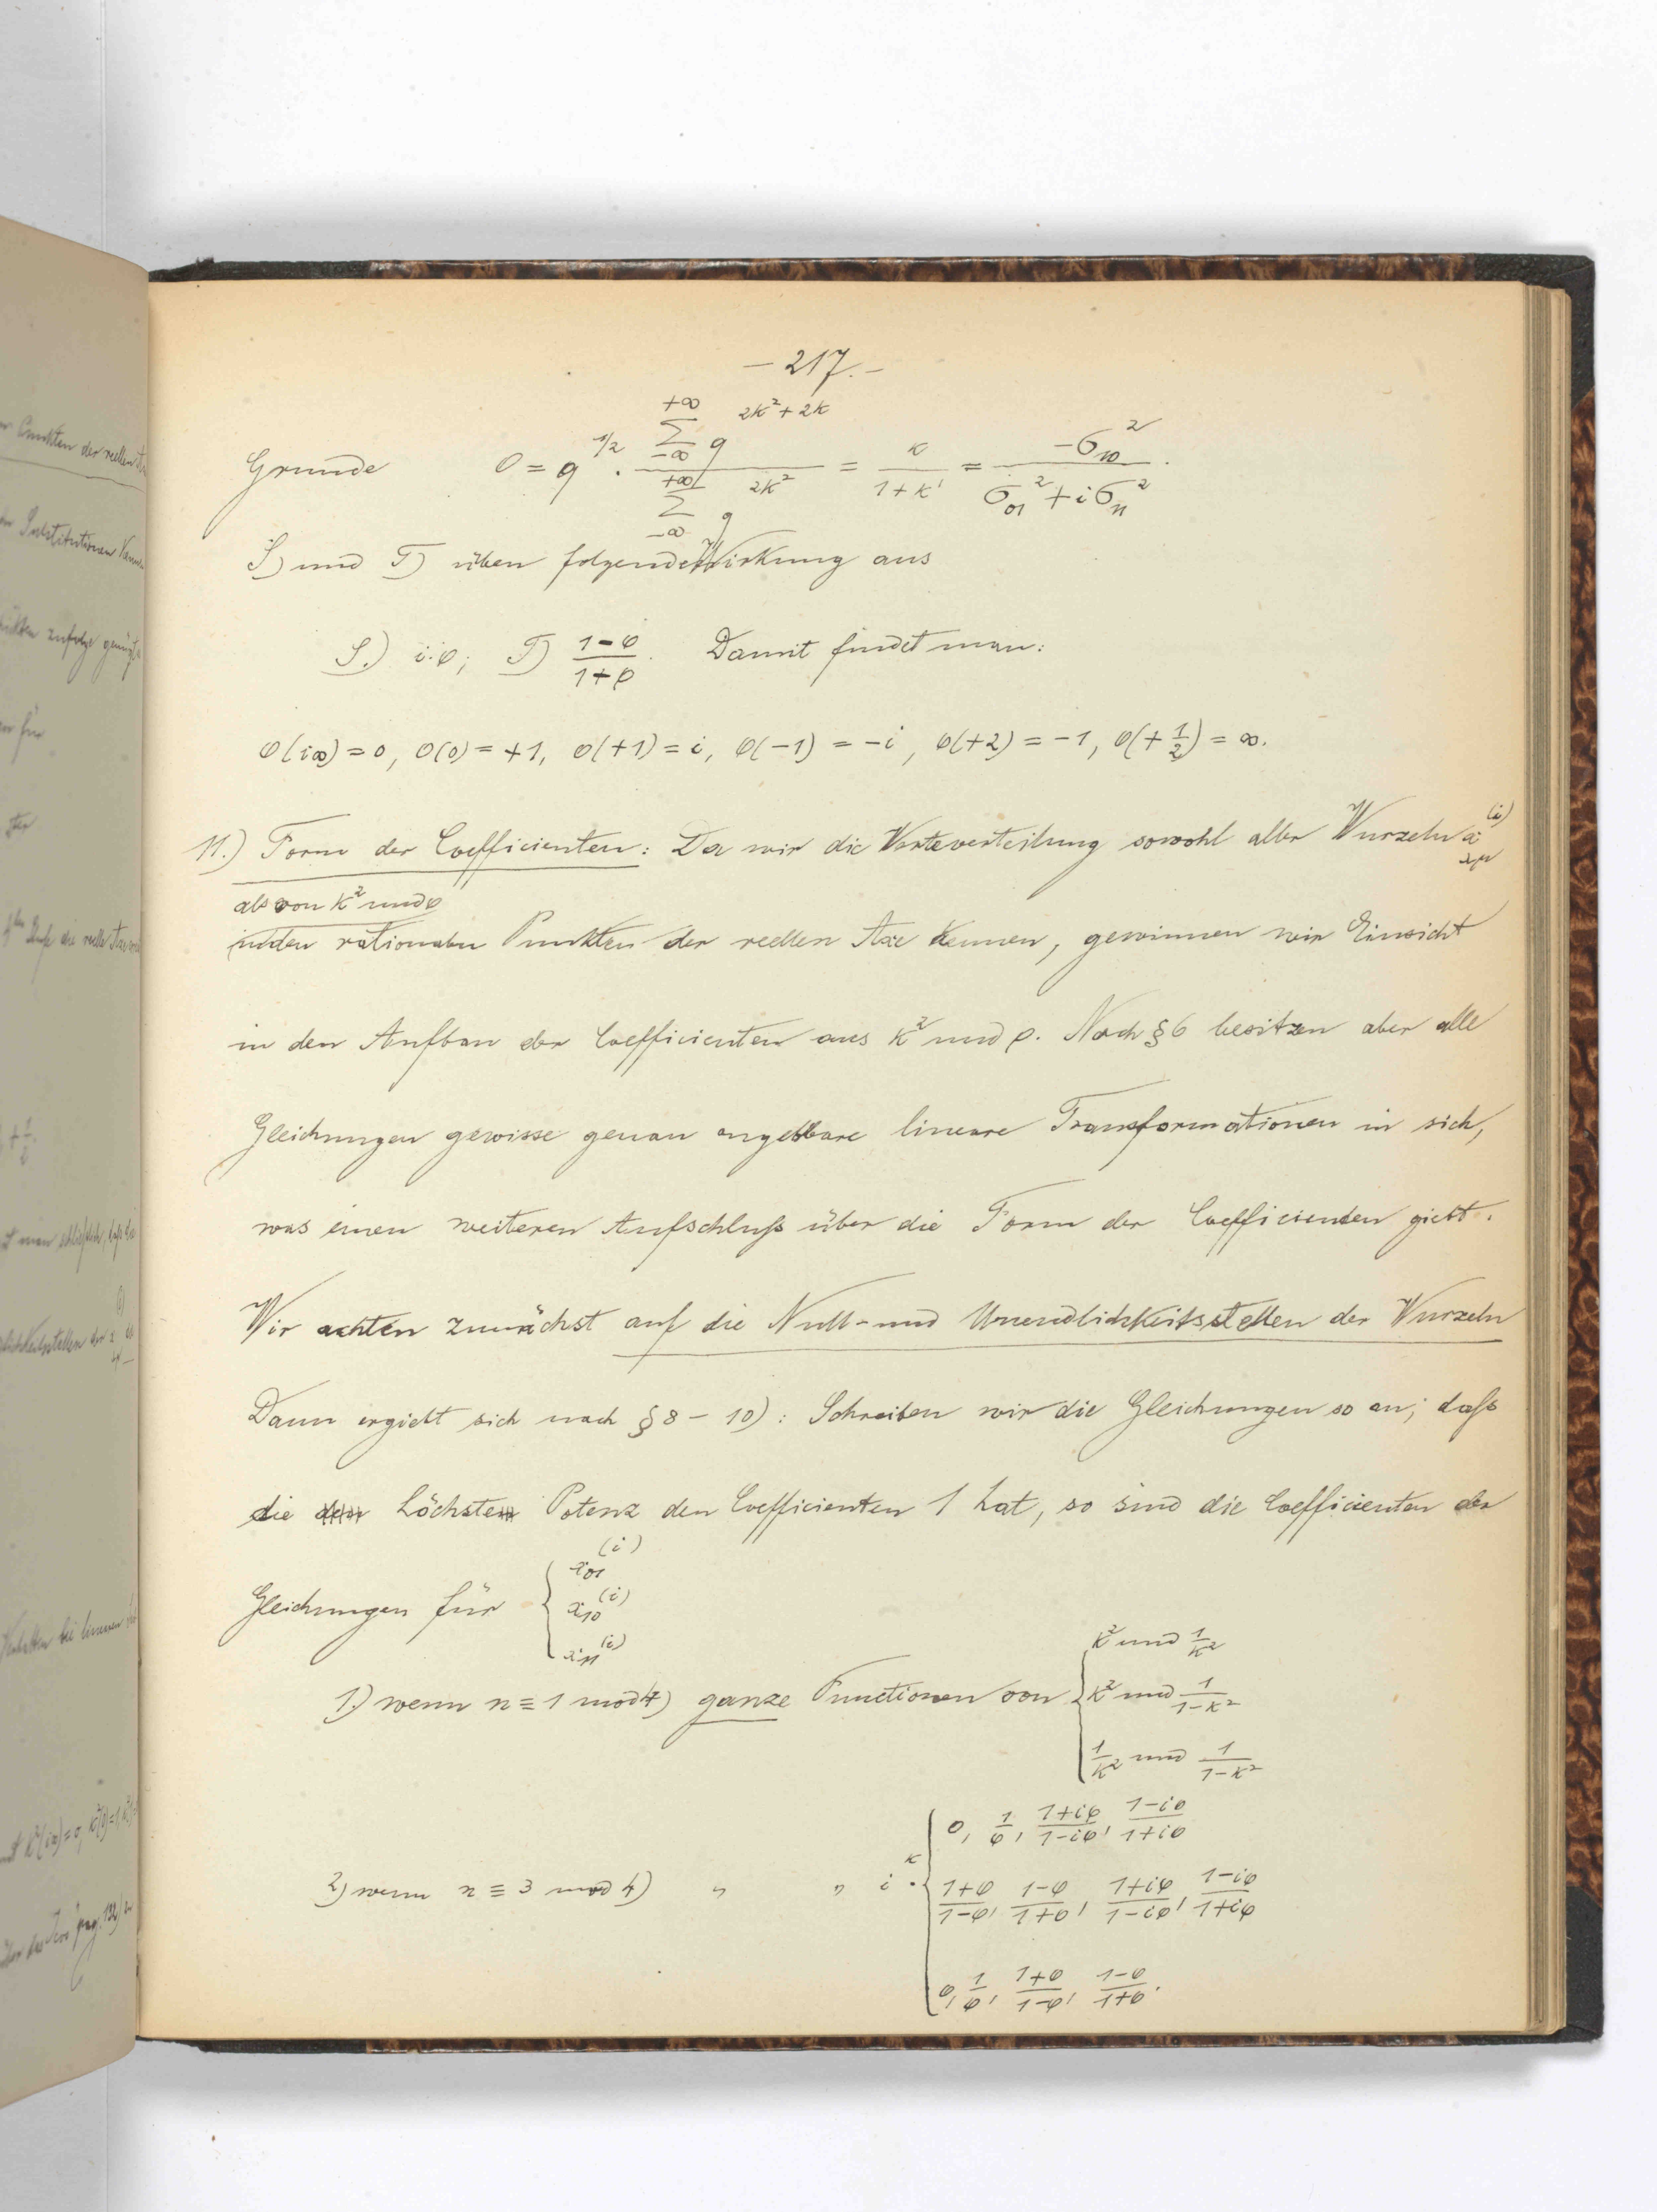 – 217. –
Grunde φ = q^{1/2} · \frac{\sum_{-\infty}^{+\infty} q^{2k^2+2k}}{\sum_{-\infty}^{+\infty} q^{2k^2}} = \frac{k}{1+k'} = \frac{-σ_{10}^2}{σ_{01}^2 + iσ_{11}^2}.
S) und T) üben folgende Wirkung aus
S.) i·φ; T) \frac{1-φ}{1+φ}. Damit findet man:
φ(i∞) = 0, φ(0) = +1, φ(+1) = i, φ(-1) = -i, φ(+2) = -1, φ(+\frac{1}{2}) = ∞.
11.) Form der Coefficienten: Da wir die Werteverteilung sowohl aller Wurzeln x_{λμ}^{(i)}
als von k² und φ
in den rationalen Punkten der reellen Axe kennen, gewinnen wir Einsicht
in den Aufbau der Coefficienten aus k² und φ. Nach § 6 besitzen aber alle
Gleichungen gewisse genau angebbare lineare Transformationen in sich,
was einen weiteren Aufschluß über die Form der Coefficienten giebt.
Wir achten zunächst auf die Null- und Unendlichkeitsstellen der Wurzeln
Dann ergiebt sich nach § 8 – 10): Schreiben wir die Gleichungen so an, daß
die höchste Potenz den Coefficienten 1 hat, so sind die Coefficienten der
Gleichungen für { x_{01}^{(i)}
x_{10}^{(i)}
x_{11}^{(i)}
1.) wenn n ≡ 1 mod 4) ganze Functionen von { k² und \frac{1}{k²}
k² und \frac{1}{1-k²}
\frac{1}{k²} und \frac{1}{1-k²}
2) wenn n ≡ 3 mod 4) " " i^k · { φ, \frac{1}{φ}, \frac{1+iφ}{1-iφ}, \frac{1-iφ}{1+iφ}
\frac{1+φ}{1-φ}, \frac{1-φ}{1+φ}, \frac{1+iφ}{1-iφ}, \frac{1-iφ}{1+iφ}
φ, \frac{1}{φ}, \frac{1+φ}{1-φ}, \frac{1-φ}{1+φ}.